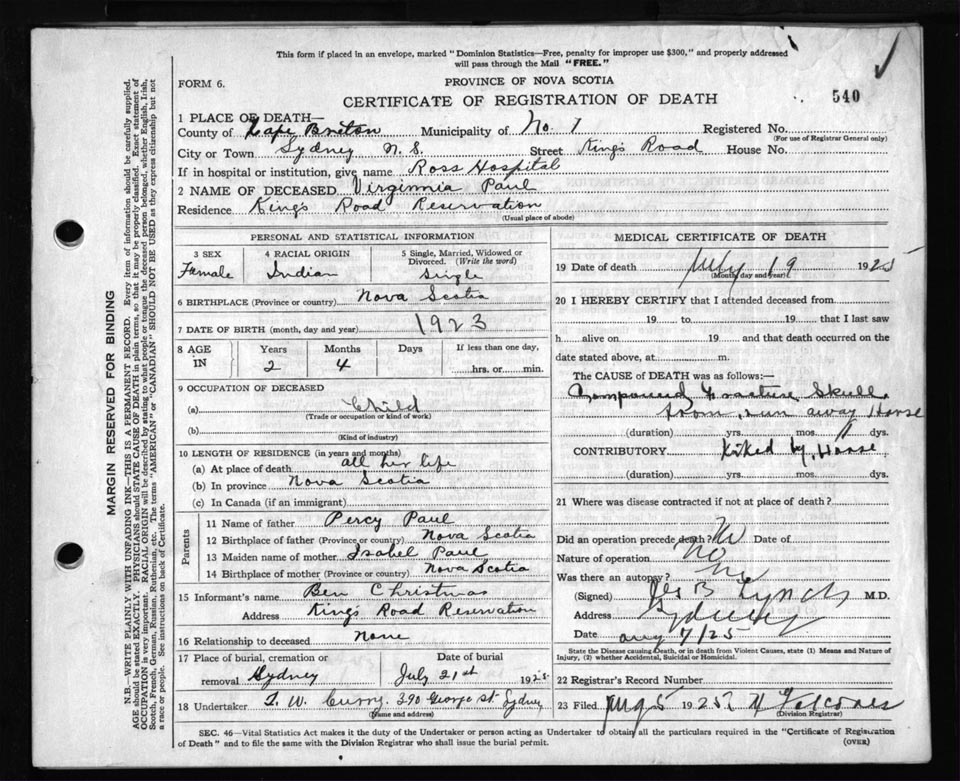 This form if placed in an envelope, marked "Dominion Statistics—Free, penalty for improper use $300," and properly addressed
will pass through the Mail "FREE."
FORM 6.
PROVINCE OF NOVA SCOTIA
CERTIFICATE OF REGISTRATION OF DEATH
540
1 PLACE OF DEATH—
County of Cape Briton Municipality of No. 7 Registered No.
(For use of Registrar General only)
City or Town Sydney N. S. Street King's Road House No.
If in hospital or institution, give name Ross Hospital
2 NAME OF DECEASED Virginnia Paul
Residence King's Road Reservation
(Usual place of abode)
PERSONAL AND STATISTICAL INFORMATION
3 SEX 4 RACIAL ORIGIN 5 Single, Married, Widowed or
Divorced. (Write the word)
Famale Indian Single
6 BIRTHPLACE (Province or country) Nova Scotia
7 DATE OF BIRTH (month, day and year) 1923
8 AGE IN Years Months Days If less than one day,
2 4 hrs. or min.
9 OCCUPATION OF DECEASED
(a) Child
(Trade or occupation or kind of work)
(b)
(Kind of industry)
10 LENGTH OF RESIDENCE (in years and months)
(a) At place of death all her life
(b) In province Nova Scotia
(c) In Canada (if an immigrant)
Parents
11 Name of father Percy Paul
12 Birthplace of father (Province or country) Nova Scotia
13 Maiden name of mother Isabel Paul
14 Birthplace of mother (Province or country) Nova Scotia
15 Informant's name Ben Christmas
Address King's Road Reservation
16 Relationship to deceased None
17 Place of burial, cremation or Date of burial
removal Sydney July 21st 1925
18 Undertaker T. W. Curry. 390 George St Sydney
(Name and address)
MEDICAL CERTIFICATE OF DEATH
19 Date of death July 19 1925
(Month, day and year)
20 I HEREBY CERTIFY that I attended deceased from
19 to 19 that I last saw
h alive on 19 and that death occurred on the
date stated above, at m.
The CAUSE of DEATH was as follows:—
Compound Fracture Skull
from run away Horse
(duration) yrs. mos. dys.
CONTRIBUTORY Kiked by Horse
(duration) yrs. mos. dys.
21 Where was disease contracted if not at place of death?
Did an operation precede death? No Date of
Nature of operation No
Was there an autopsy? No
(Signed) B Lynch M.D.
Address Sydney
Date aug 7/25
State the Disease causing Death, or in death from Violent Causes, state (1) Means and Nature of
Injury, (2) whether Accidental, Suicidal or Homicidal.
22 Registrar's Record Number
23 Filed 1925
(Division Registrar)
SEC. 46—Vital Statistics Act makes it the duty of the Undertaker or person acting as Undertaker to obtain all the particulars required in the "Certificate of Registration
of Death" and to file the same with the Division Registrar who shall issue the burial permit. (OVER)
MARGIN RESERVED FOR BINDING
N.B.—WRITE PLAINLY WITH UNFADING INK—THIS IS A PERMANENT RECORD. Every item of information should be carefully supplied.
AGE should be stated EXACTLY. PHYSICIANS should STATE CAUSE OF DEATH in plain terms, so that it may be properly classified. Exact statement of
OCCUPATION is very important. RACIAL ORIGIN will be described by stating to what people or tongue the deceased person belonged, whether English, Irish,
Scotch, French, German, Russian, Ruthenian, etc. The terms "AMERICAN" or "CANADIAN" SHOULD NOT BE USED as they express citizenship but not
a race or people. See instructions on back of Certificate.